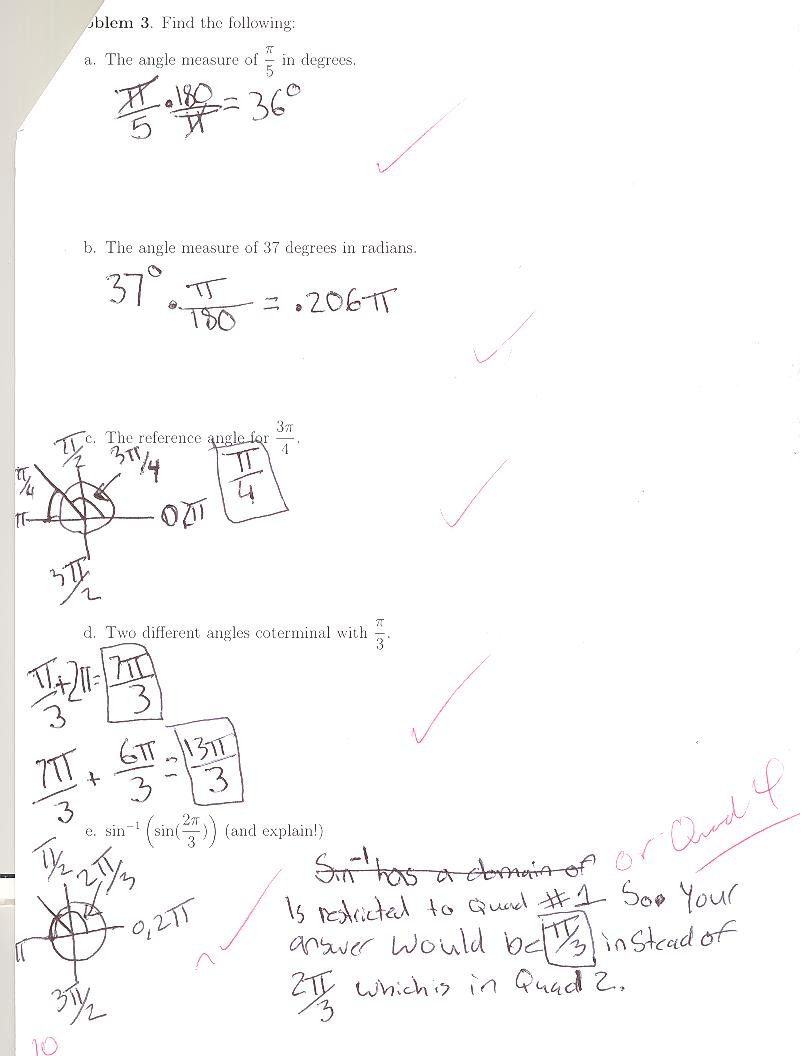 oblem 3. Find the following:
a. The angle measure of π/5 in degrees.
π/5 · 180/π = 36°
b. The angle measure of 37 degrees in radians.
37° · π/180 = .206π
c. The reference angle for 3π/4.
π/2 3π/4 π/4
π/4
π 0 2π
3π/2
d. Two different angles coterminal with π/3.
π/3 + 2π = 7π/3
7π/3 + 6π/3 = 13π/3
e. sin⁻¹ (sin(2π/3)) (and explain!)
or Quad 4
π/2 2π/3 Sin⁻¹ has a domain of
Is restricted to Quad #1 Soo Your
0, 2π
π answer would be π/3 instead of
3π/2 2π/3 which is in Quad 2.
10